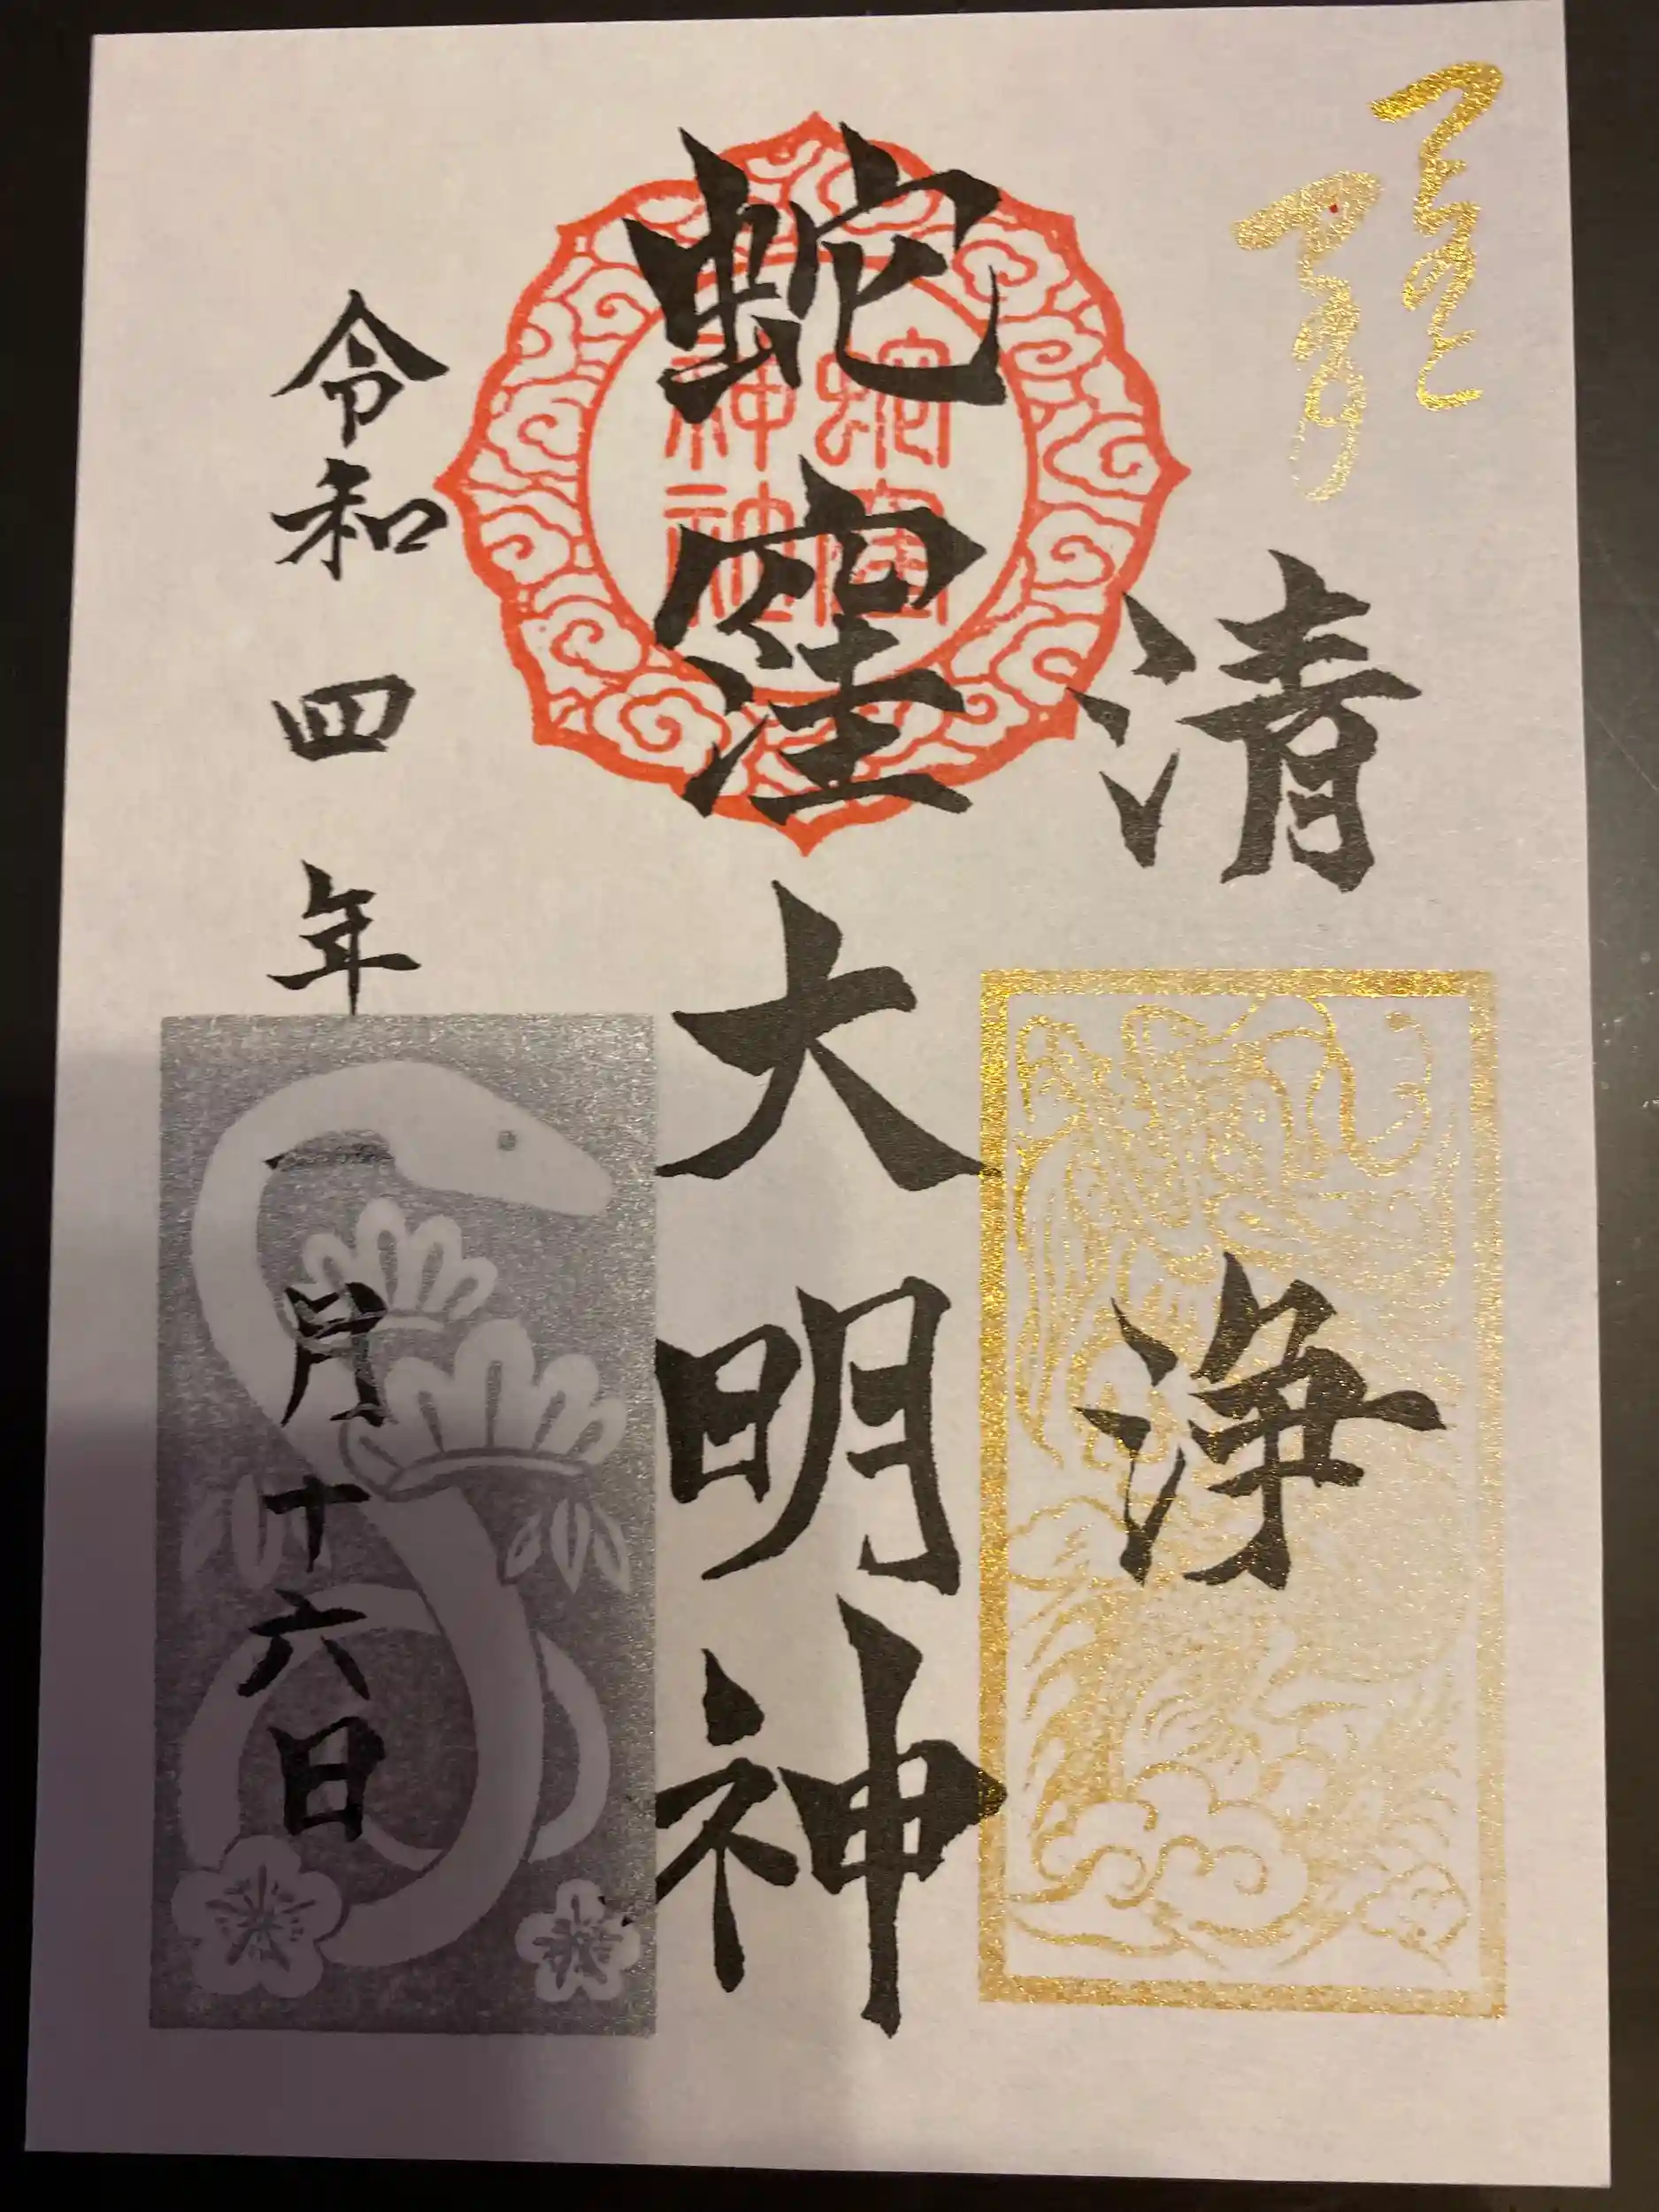 奉拝
清浄
蛇窪大明神
蛇窪神社
令和四年一月十六日